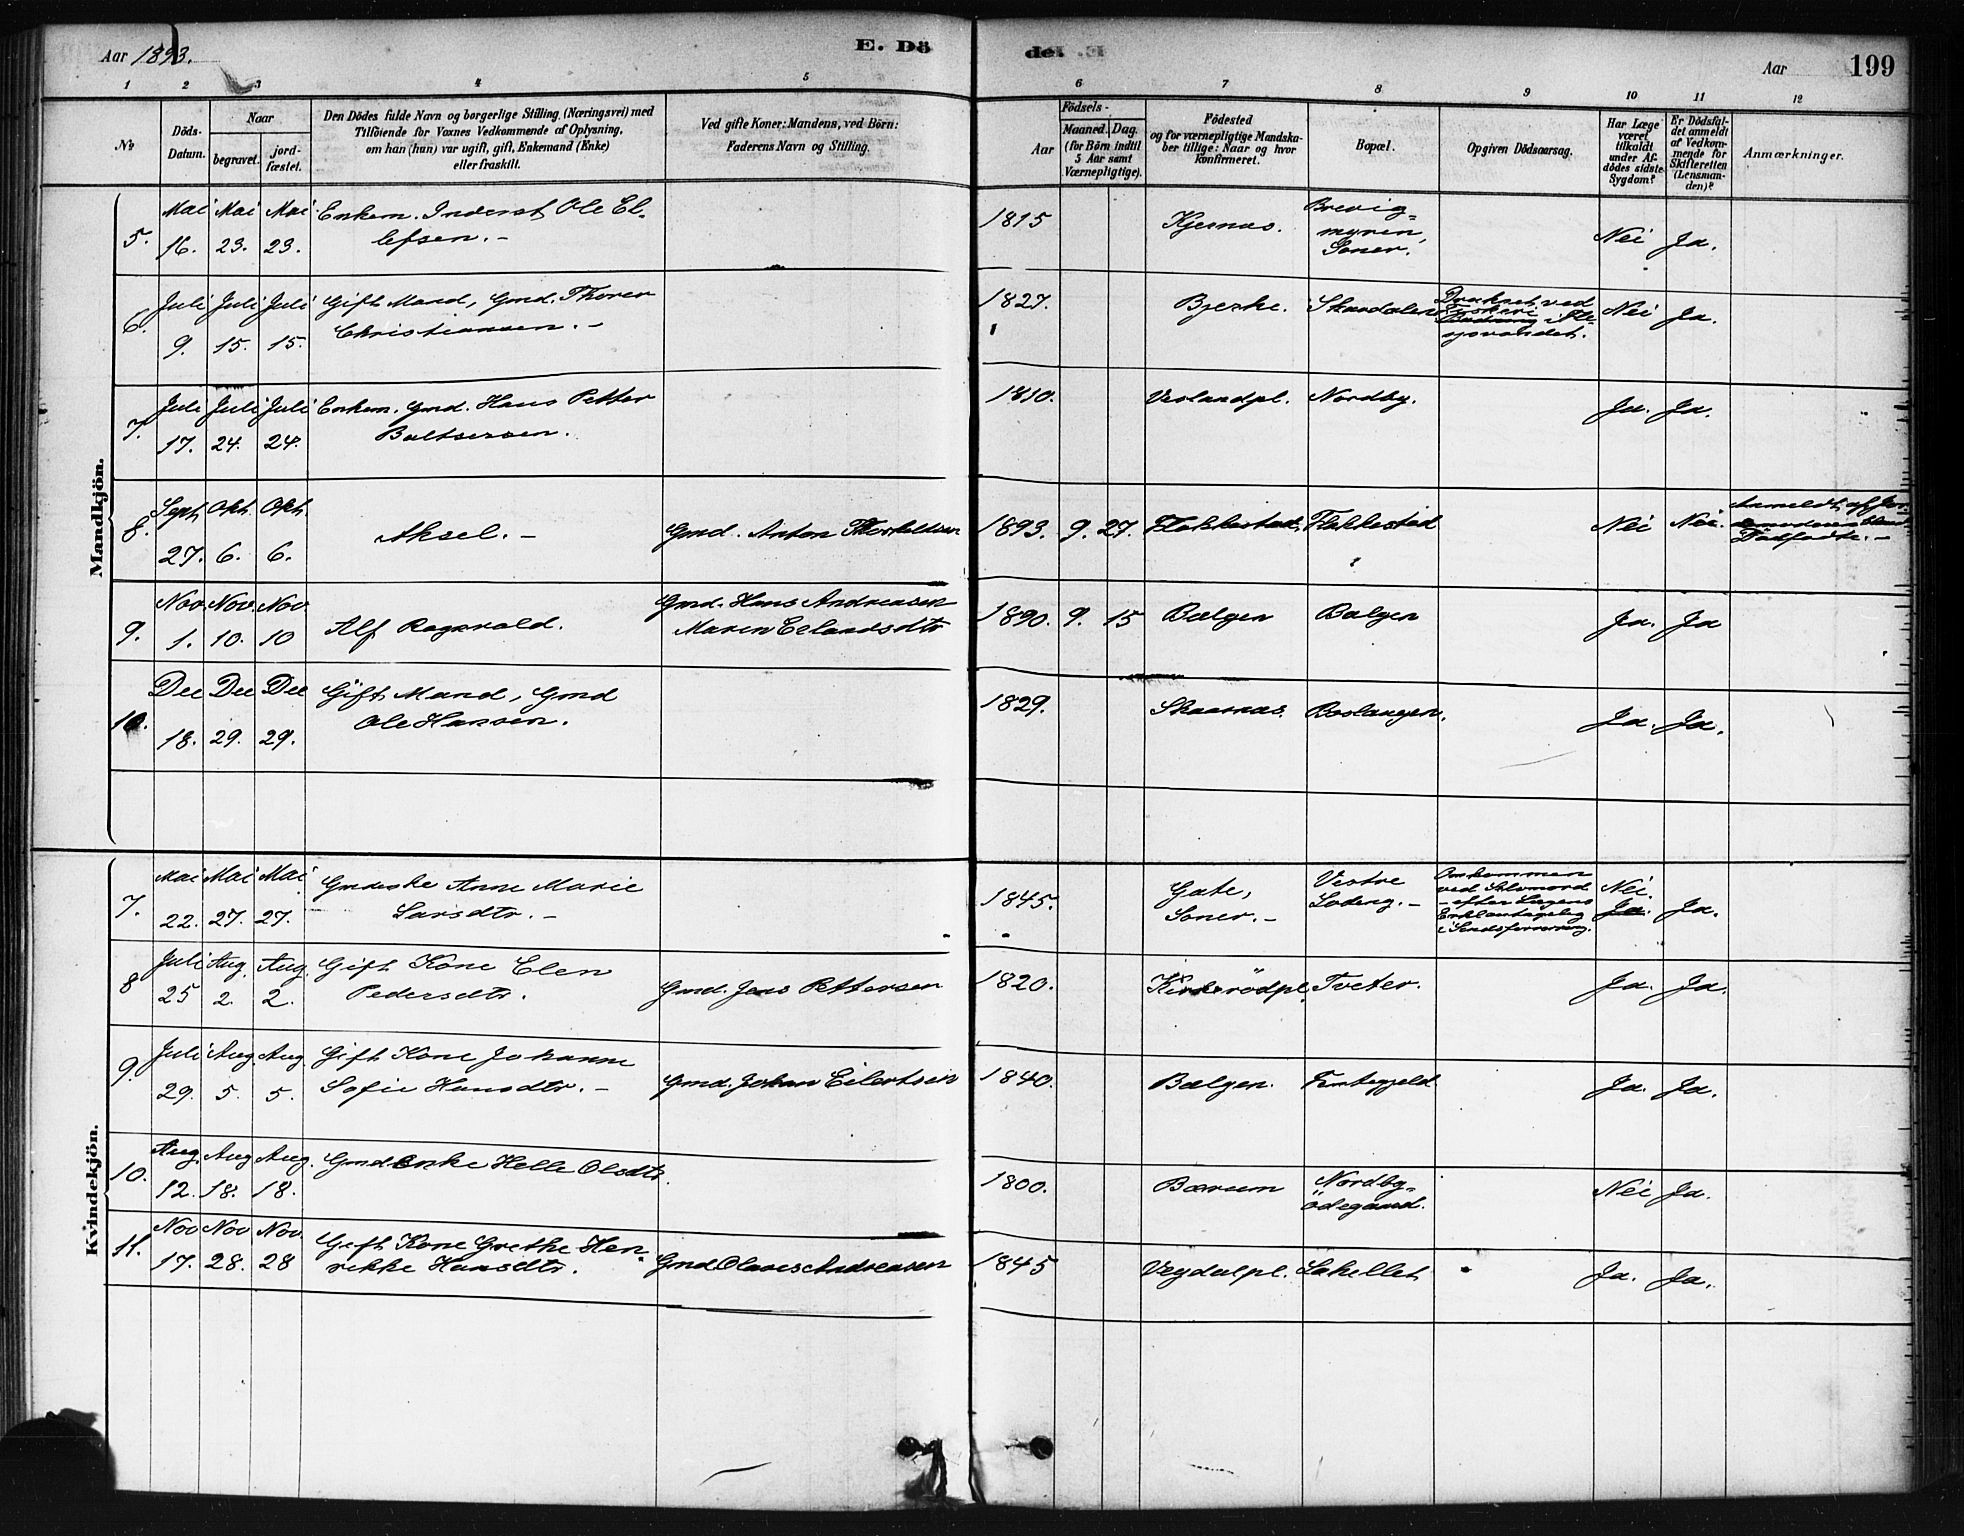 Aar 1893.
E. Dö
de. E
Aar
199
1 2 3 4 5 6 7 8 9 10 11 12
No
Döds-
Datum.
Naar
begravet.
jord-
fæstet.
Den Dödes fulde Navn og borgerlige Stilling (Næringsvei) med
Tilföiende for Voxnes Vedkommende af Oplysning,
om han (hun) var ugift, gift, Enkemand (Enke)
eller fraskilt.
Ved gifte Koner: Mandens, ved Börn:
Faderens Navn og Stilling.
Födsels-
Aar
Maaned. Dag.
(for Börn indtil
5 Aar samt
Værnepligtige).
Födested
og for værnepligtige Mandska-
ber tillige: Naar og hvor
Konfirmeret.
Bopæl.
Opgiven Dödsaarsag.
Har Læge
været
tilkaldt
under Af-
dödes sidste
Sygdom?
Er Dödsfal-
det anmeldt
af Vedkom-
mende for
Skifteretten
(Lensman-
den)?
Anmærkninger.
Mandkjön.
5. Mai 16. Mai 23. Mai 23. Enkem. Inderst Ole El-
lefsen. -
1815 Kjernæs. Brevig-
myren,
Soner. Nei Ja.
6. Juli 9. Juli 15. Juli 15. Gift Mand, Gmd. Thorer
Christiansen. -
1827. Bjerke. Druknet ved
Fiskeri
Nei Ja.
7. Juli 17. Juli 24. Juli 24. Enkem. Gmd. Hans Petter
Baltsersen.
1810. Nordby. Ja. Ja.
8. Sept 27. Okt 6. Okt 6. Aksel. - Gmd. Anton
1893. 9. 27. Flakkestad Nei Nei.
Dödfödte. -
9. Nov. 1. Nov. 10. Nov 10 Alf Ragnvald. Gmd. Hans Andreasen
Maren Erlandsdtr
1890. 9. 15 Bølgen Bølgen Ja. Ja
10. Dec 18. Dec 29. Dec 29. Gift Mand, Gmd
Ole Hansen.
1829. Ja. Ja.
Kvindekjön.
7. Mai 22. Mai 27. Mai 27. Gmdenke Anne Marie
Larsdtr. -
1845. Gate,
Soner. - Vestre
Omkommen
ved Selvmord
- efter Lægens
Nei.
Ja. Ja.
8 Juli 25 Aug. 2. Aug. 2. Gift Kone Elen
Pedersdtr. Gmd. Jens Pettersen
1820. Kirkerödpl. Tveter. Ja. Ja.
9. Juli 29. Aug. 5. Aug. 5. Gift Kone Johanne
Sofie Hansdtr. - Gmd. Johan Eilertsen
1840. Bølgen. Ja. Ja.
10. Aug. 12. Aug 18. Aug. 18. Gmdenke Helle Olsdtr.
1800. Bærum Nordby-
ödegaard. Nei Ja.
11. Nov 17. Nov 28. Nov. 28 Gift Kone Grethe Hen-
rikke Hansdtr. Gmd Olaves Andreasen
1845 Ja. Ja.